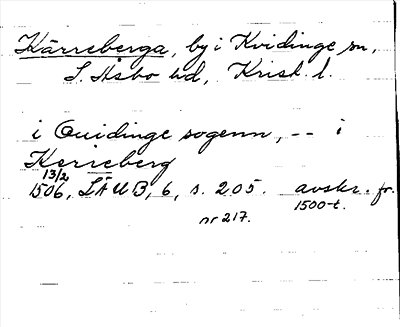 Kärreberga, by i Kvidinge sn,
S. Åsbo hd, Krist. l.
i Quidinge sogenn, -- i
Kerreberg
13/2
1506, LÄUB, 6, s. 205. avskr. fr.
1500-t.
nr 217.